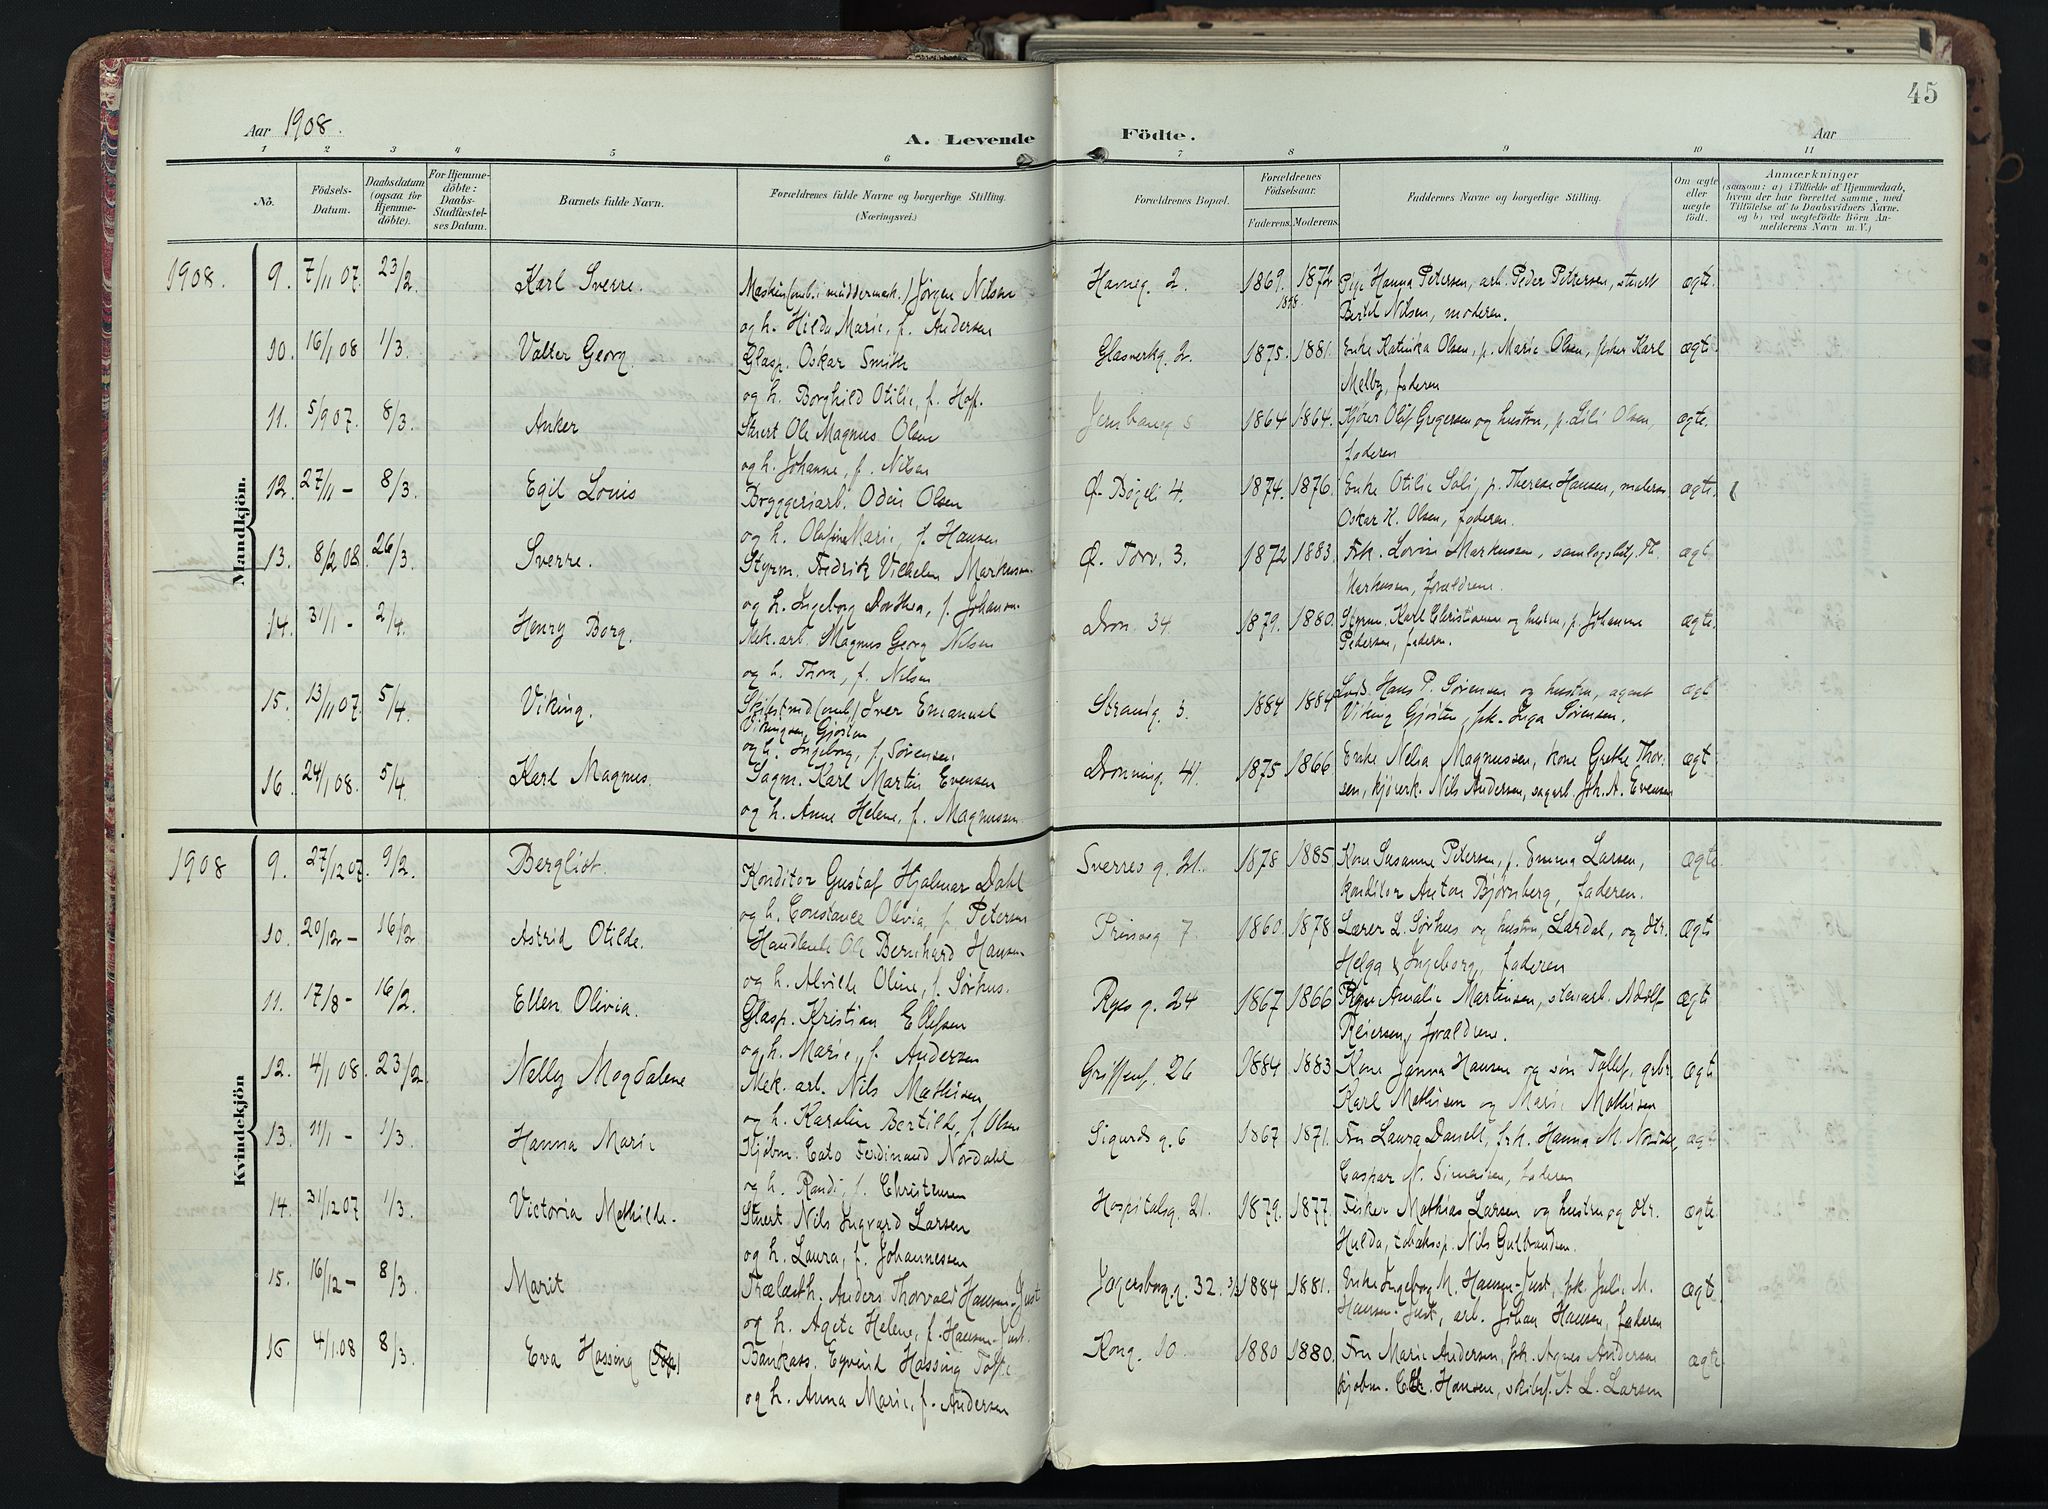 45
Aar 1908.
A. Levende Födte.
Aar
1 2 3 4 5 6 7 8 9 10 11
No. Födsels-Datum. Daabsdatum (ogsaa for Hjemmedöbte). For Hjemmedöbte: Daabs-Stadfæstelses Datum. Barnets fulde Navn. Forældrenes fulde Navne og borgerlige Stilling. (Næringsvei.) Forældrenes Bopæl. Forældrenes Födselsaar. Faderens. Moderens. Faddernes Navne og borgerlige Stilling. Om ægte eller uægte födt. Anmærkninger (saasom: a) i Tilfælde af Hjemmedaab, hvem der har forrettet samme, med Tilföielse af to Daabsvidners Navne. og b) ved uægtefödte Börn Anmelderens Navn m. V.)
Mandkjön.
1908. 9. 7/11 07. 23/2 Karl Sverre. Maskin(omb. i muddermask.) Jørgen Nilsen Havneg. 2. 1869. 1872 Pige Hanna Petersen, arb. Peder Pettersen, stuert ægte.
og h. Hilda Marie, f. Andersen 1878. Bertel Nilsen, moderen.
10. 16/1 08 1/3. Valter Georg. Glasp. Oskar Smith Glasverkg. 2. 1875. 1881. Enke Katinka Olsen, p. Marie Olsen, fisker Karl ægte
og h. Borghild Otilie, f. Hop. Melby, faderen
11. 5/9 07. 8/3. Anker Stuert Ole Magnus Olsen Jernbaneg 5 1864 1864. Kjører Oluf Gregersen og hustru, p. Lili Olsen, ægte.
og h. Johanne, f. Nilsen faderen
12. 27/11 - 8/3. Egil Louis Bryggeriarb. Odin Olsen Ø. Bøgeli 4. 1874. 1876. Enke Otilie Soli, p. Therese Hansen, maleren ægte.
og h. Olafine Marie, f. Hansen Oskar H. Olsen, faderen.
13. 8/2 08. 26/3. Sverre. Styrm. Fredrik Vilhelm Markussen Ø. Torv. 3. 1872 1883. Frk. Lovise Markussen, samlagsbest. Th. ægte
og h. Ingeborg Dorthea, f. Johansen Markusen, forældrene.
14. 31/1 - 2/4. Henry Borg. Mek. arb. Magnus Georg Nilsen Dron. 34. 1879. 1880. Styrm. Karl Christiansen og hustru, p. Johanne ægte.
og h. Thora, f. Nilsen. Pedersen, faderen.
15. 13/11 07. 5/4. Viking. Skibstmd(omb.) Iver Emanuel Strandg. 3. 1884 1884 Hans P. Sørensen og hustru, agent ægt
Vikingsen Gjøsten Viking Gjøsten, frk. Inga Sørensen.
og h. Ingeborg, f. Sørensen.
16. 24/1 08. 5/4. Karl Magnus. Sagm. Karl Martin Evensen Dronning. 41. 1875 1866 Enke Nelsa Magnussen, kone Grethe Thor- ægt
og h. Anne Helene, f. Magnussen. sen, kjørerk. Nils Andersen, sagarb. Joh. A. Evensen
Kvindekjön
1908 9. 27/12 07. 9/2. Bergliot. Konditor Gustaf Hjalmar Dahl Sverres g. 21. 1878 1885. Kone Susanne Petersen, p. Emma Larsen, ægte
og h. Constance Olivia, f. Petersen konditor Anton Bjørnsberg, faderen.
10. 20/12 - 16/2 Astrid Otilde. Handlende Ole Bernhard Hansen Prinseg 7 1860. 1878 Lærer L. Sørhus og hustru, Lardal, og dtr. Ægte
og h. Alvilde Oline, f. Sørhus. Helga & Ingeborg, faderen
11. 17/8 - 16/2. Ellen Olivia. Glasp. Kristian Ellefsen Ryes g. 24 1867 1866 Amalie Martinsen, stenarb. Adolf Ægte
og h. Marie, f. Andersen Reiersen, forældrene.
12. 4/1 08. 23/2 Nelly Magdalene Mek. arb. Nils Mathisen Griffenf. 26 1884 1883 Kone Janna Hansen og søn Tollef, arbr. Ægte
og h. Karoline Bertilde, f. Olsen Karl Mathisen og Marie Mathisen
13. 11/1 - 1/3. Hanna Marie Kjøbm. Cato Ferdinand Nordahl Sigurds g. 6 1867 1871. Fru Laura Daniell, frk. Hanna M. Nordal, ægte
og h. Randi, f. Christensen Caspar N. Simonsen, faderen
14. 31/12 07 1/3. Victoria Mathilde. Stuert Nils Ingvard Larsen Hospitalsg. 21. 1879. 1877. Fisker Mathias Larsen og hustru og dtr. ægte
og h. Laura, f. Johannessen Hulda, tobaksp. Nils Gulbrandsen.
15. 16/12 - 8/3. Marit Trælasth. Anders Thorvald Hansen-Just Jægersborg. g. 32. 1884 1881. Enke Ingeborg M. Hansen-Just, frk. Juli M. ægte
og h. Agete Helene, f. Hansen-Just. Hansen-Just, arb. Johan Hansen, faderen
16 4/1.08 8/3. Eva Hassing (Toft) Bankass. Eyvind Hassing Tofte Kong. 10. 1880 1880. Fru Marie Andersen, frk. Agnes Andersen ægte
og h. Anna Marie, f. Andersen kjøbm. Hansen, skibsf. A. L. Larsen